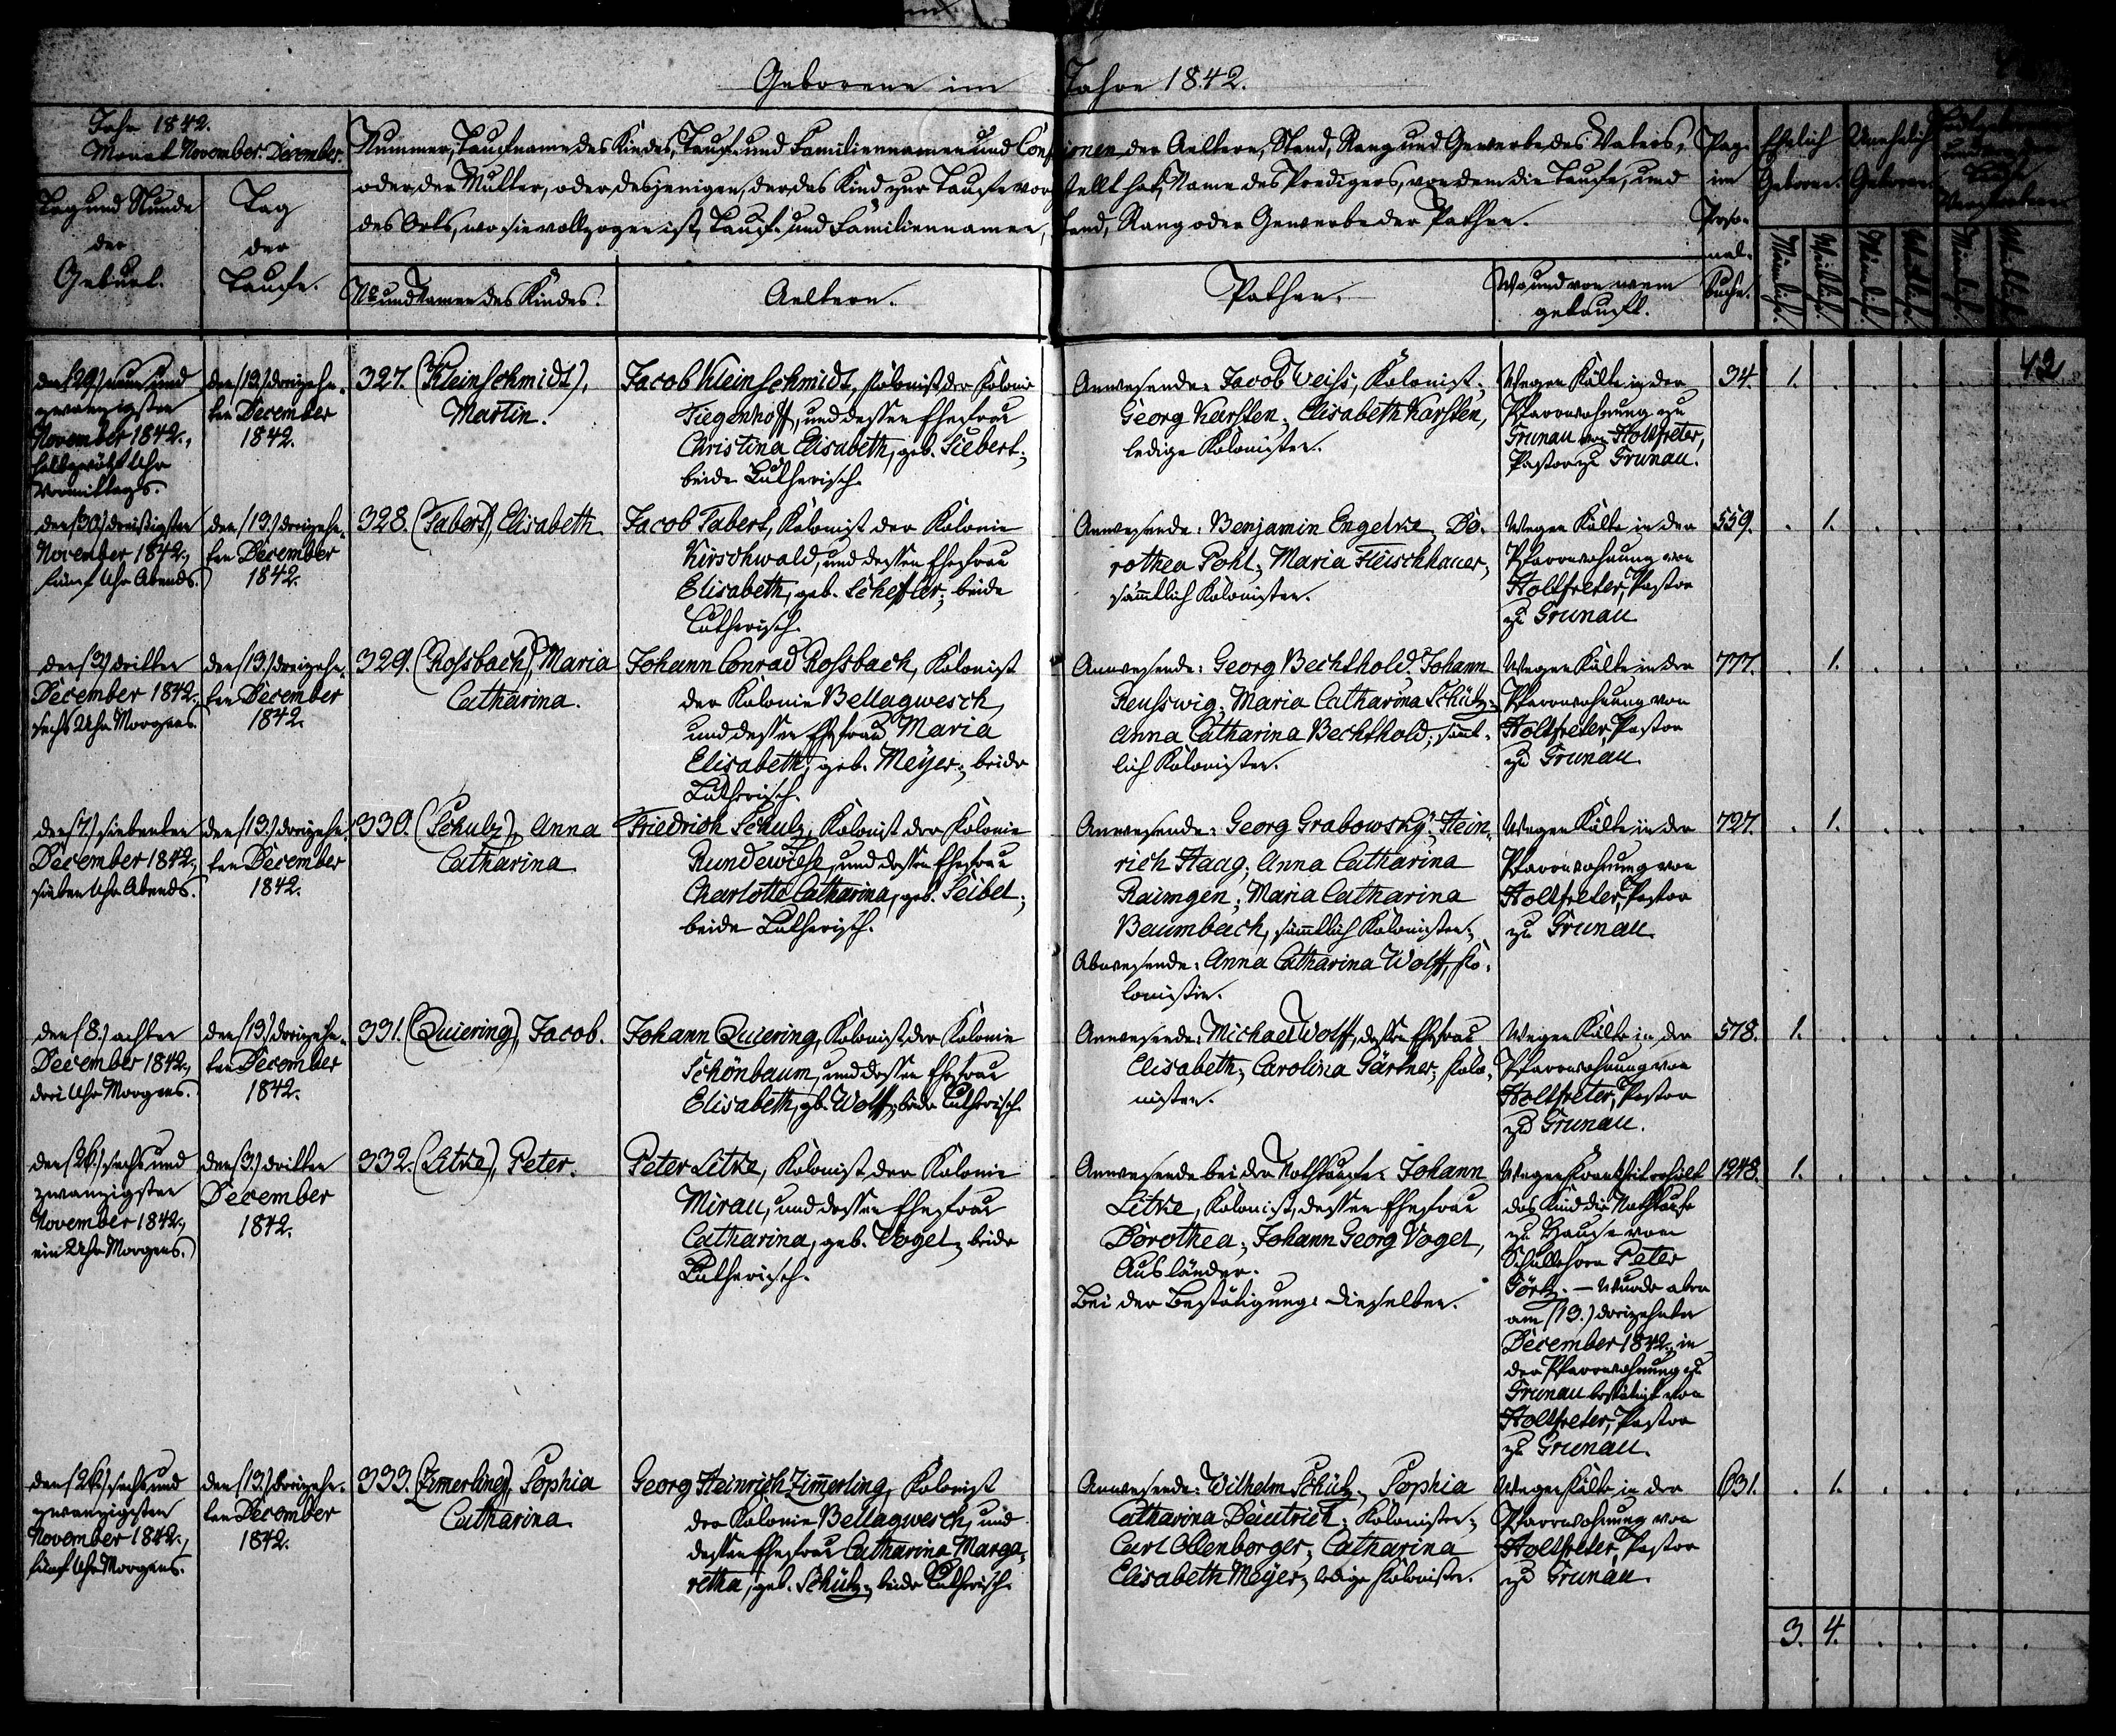 Geborene im Jahre 1842.
Jahr 1842.
Monat November. December.
Tag und Stunde
der
Geburt.
Tag
der
Taufe.
Nummer, Taufname des Kindes, Tauf- und Familiennamen und Confessionen der Aeltern, Stand, Rang und Gewerbe des Vaters,
oder der Mutter, oder desjenigen, der das Kind zur Taufe vorgestellt hat, Name des Predigers, von dem die Taufe, und
des Orts, wo sie vollzogen ist, Tauf- und Familiennamen, Stand, Rang oder Gewerbe der Pathen.
No und Namen des Kindes.
Aeltern.
Pathen.
Wo und von wem
getauft.
Pag.
im
Perso-
nal-
buche.
Ehelich
Geboren.
Unehelich
Geboren.
Männlich.
Weiblich.
Männlich.
Weiblich.
Männlich.
Weiblich.
den (29.) neun und
zwanzigsten
November 1842.,
halb zwölf Uhr
Vormittags.
den (13.) dreizehn-
ten December
1842.
327. (Kleinschmidt),
Martin.
Jacob Kleinschmidt, Kolonist der Kolonie
Tiegenhoff, und dessen Ehefrau
Christina Elisabeth, geb. Siebert;
beide Lutherisch.
Anwesende: Jacob Veiss, Kolonist;
Georg Karsten; Elisabeth Karsten,
ledige Kolonisten.
Wegen Kälte in der
Pfarrwohnung zu
Grunau von Holtfreter,
Pastor zu Grunau.
34.
1.
42
den (30.) dreißigsten
November 1842.,
fünf Uhr Abends.
den (13.) dreizehn-
ten December
1842.
328. (Tabert), Elisabeth
Jacob Tabert, Kolonist der Kolonie
Kirschwald, und dessen Ehefrau
Elisabeth, geb. Scheffler; beide
Lutherisch.
Anwesende: Benjamin Engelke; Do-
rothea Pohl; Maria Fleischhauer,
sämmtlich Kolonisten.
Wegen Kälte in der
Pfarrwohnung von
Holtfreter, Pastor
zu Grunau
559.
1.
den (3.) dritten
December 1842.,
sechs Uhr Morgens.
den (13.) dreizehn-
ten December
1842.
329. (Rossbach), Maria
Catharina.
Johann Conrad Rossbach, Kolonist
der Kolonie Bellagwesch,
und dessen Ehefrau Maria
Elisabeth, geb. Meyer; beide
Lutherisch.
Anwesende: Georg Bechthold; Johann
Reusswig; Maria Catharina Schütz;
Anna Catharina Bechthold; sämt-
lich Kolonisten.
Wegen Kälte in der
Pfarrwohnung von
Holtfreter, Pastor
zu Grunau.
777.
1.
den (7.) siebenten
December 1842.,
sieben Uhr Abends.
den (13.) dreizehn-
ten December
1842.
330. (Schulz), Anna
Catharina
Friedrich Schulz, Kolonist der Kolonie
Rundewiese, und dessen Ehefrau
Charlotte Catharina, geb. Seibel;
beide Lutherisch.
Anwesende: Georg Grabowsky; Hein-
rich Haag; Anna Catharina
Raimgen; Maria Catharina
Baumbach, sämmtlich Kolonisten;
Abwesende: Anna Catharina Wolff, Ko-
lonistin.
Wegen Kälte in der
Pfarrwohnung von
Holtfreter, Pastor
zu Grunau.
727.
1.
den (8.) achten
December 1842.,
drei Uhr Morgens.
den (13.) dreizehn-
ten December
1842.
331. (Quiering), Jacob.
Johann Quiering, Kolonist der Kolonie
Schönbaum, und dessen Ehefrau
Elisabeth, geb. Wolff; beide Lutherisch.
Anwesende: Michael Wolff, dessen Ehefrau
Elisabeth; Carolina Gärtner; Kolo-
nisten.
Wegen Kälte in der
Pfarrwohnung von
Holtfreter, Pastor
zu Grunau.
578.
1.
den (26.) sechs und
zwanzigsten
November 1842.,
ein Uhr Morgens.
den (3.) dritten
December
1842.
332. (Litke), Peter.
Peter Litke, Kolonist der Kolonie
Mirau, und dessen Ehefrau
Catharina, geb. Vogel; beide
Lutherisch.
Anwesende bei der Nothtaufe: Johann
Litke, Kolonist, dessen Ehefrau
Dorothea; Johann Georg Vogel,
Ausländer.
Bei der Bestätigung: dieselben.
Wegen Krankheit erhält
das Kind die Nothtaufe
zu Hause vom
Schullehrer Peter
Görtz. - Wurde aber
am (13.) dreizehnten
December 1842. in
der Pfarrwohnung zu
Grunau bestätigt von
Holtfreter, Pastor
zu Grunau.
1248.
1.
den (26.) sechs und
zwanzigsten
November 1842.,
fünf Uhr Morgens.
den (13.) dreizehn-
ten December
1842.
333. (Zimerling), Sophia
Catharina.
Georg Heinrich Zimerling, Kolonist
der Kolonie Bellagwesch, und
dessen Ehefrau Catharina Marga-
retha, geb. Schütz; beide Lutherisch.
Anwesende: Wilhelm Schütz; Sophia
Catharina Deutrich; Kolonisten;
Carl Ollenborger; Catharina
Elisabeth Meyer; ledige Kolonisten.
Wegen Kälte in der
Pfarrwohnung von
Holtfreter, Pastor
zu Grunau.
631.
1.
3. 4.